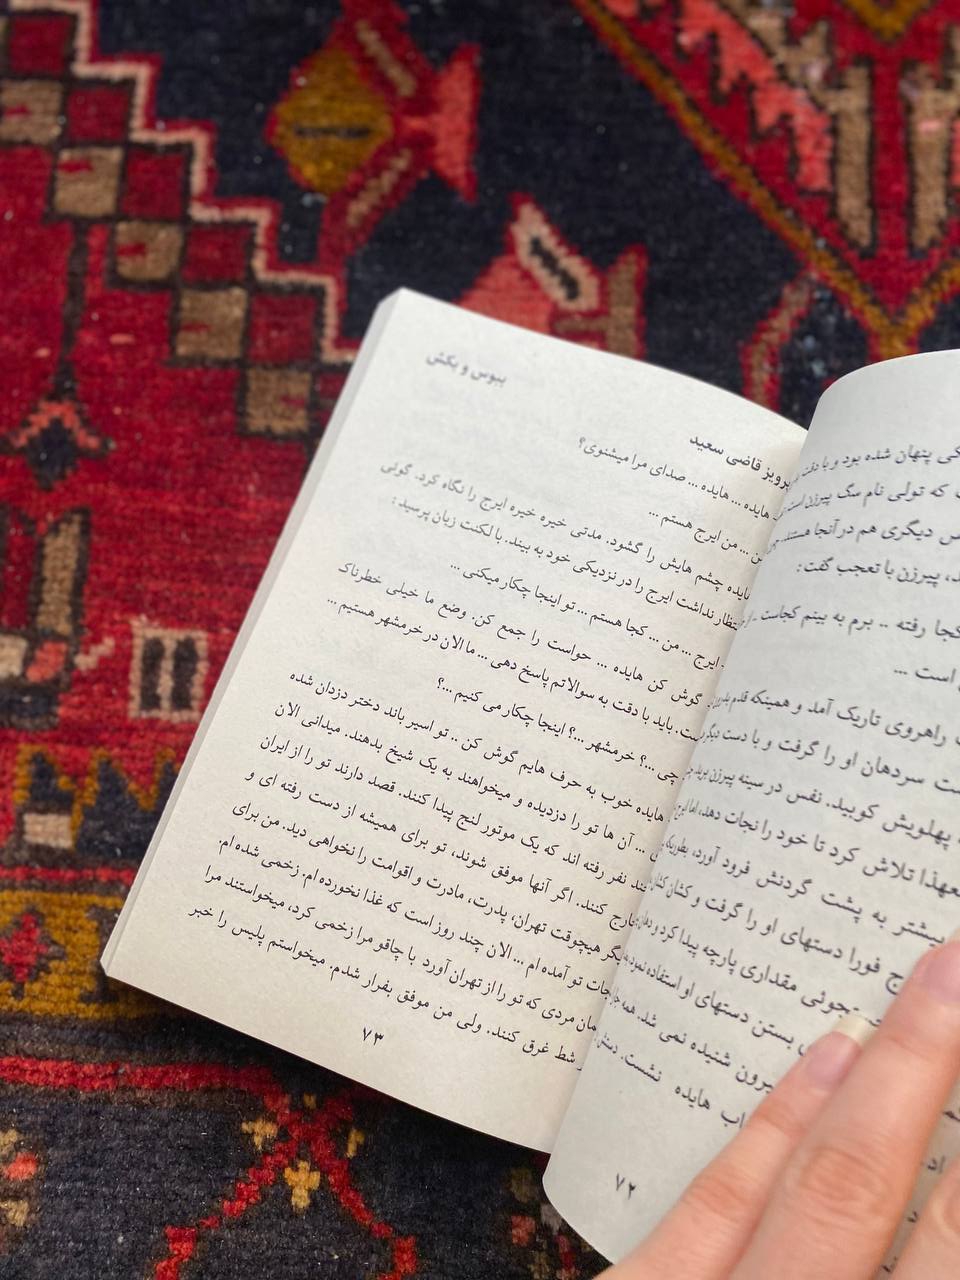 کی پنهان شده بود و با دقت
که تولی نام سگ پیرزن است
س دیگری هم در آنجا هستند.
پیرزن با تعجب گفت :
کجا رفته .. برم به بینم کجاست
است ...
راهروی تاریک آمد و همینکه قدم
ست سردهان او را گرفت و با دست دیگر
پهلویش کوبید. نفس در سینه پیرزن برید.
معهذا تلاش کرد تا خود را نجات دهد، اما ایرج
بیشتر به پشت گردنش فرود آورد، بطوریکه
ج فورا دستهای او را گرفت و کشان کشان
جوئی مقداری پارچه پیدا کرد و دهان
بستن دستهای او استفاده نمود.
یرون شنیده نمی شد. همه جا
اب هایده نشست. دستش
۷۲
ببوس و بکش
پرویز قاضی سعید
هایده ... هایده ... صدای مرا میشنوی؟
من ... من ایرج هستم ...
هایده چشم هایش را گشود. مدتی خیره خیره ایرج را نگاه کرد. گوئی
انتظار نداشت ایرج را در نزدیکی خود به بیند. با لکنت زبان پرسید :
ایرج ... من ... کجا هستم ... تو اینجا چکار میکنی ...
گوش کن هایده ... حواست را جمع کن. وضع ما خیلی خطرناک
ست. باید با دقت به سوالاتم پاسخ دهی ... ما الان در خرمشهر هستیم ...
چی ...؟ خرمشهر ...؟ اینجا چکار می کنیم ...؟
هایده خوب به حرف هایم گوش کن .. تو اسیر باند دختر دزدان شده
ی ... آن ها تو را دزدیده و میخواهند به یک شیخ بدهند. میدانی الان
چند نفر رفته اند که یک موتور لنج پیدا کنند. قصد دارند تو را از ایران
خارج کنند. اگر آنها موفق شوند، تو برای همیشه از دست رفته ای و
دیگر هیچوقت تهران، پدرت، مادرت و اقوامت را نخواهی دید. من برای
نجات تو آمده ام ... الان چند روز است که غذا نخورده ام. زخمی شده ام.
همان مردی که تو را از تهران آورد با چاقو مرا زخمی کرد، میخواستند مرا
در شط غرق کنند. ولی من موفق بفرار شدم. میخواستم پلیس را خبر
۷۳